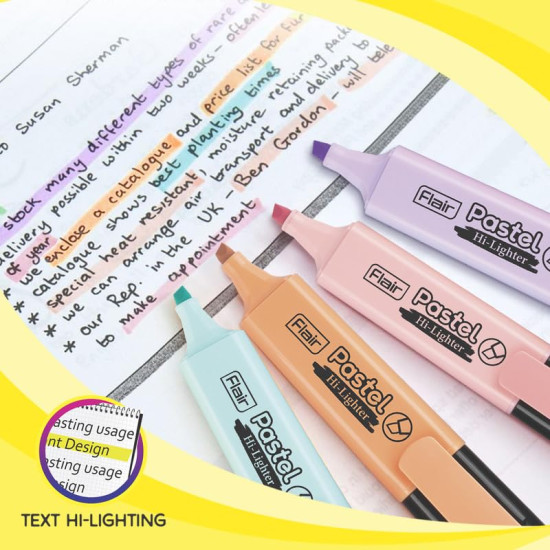 to Susan Sherman
stock many different types of rare
delivery possible within two weeks - often
of year
we enclose a catalogue and price list for
* catalogue shows best planting times
* special heat resistant, moisture retaining pack
* we can arrange air transport and delivery to
* our Rep. in the UK - Ben Gordon - will tele
to make appointment
Flair
Pastel
Hi-Lighter
Flair
Pastel
Hi-Lighter
Flair
Pastel
Hi-Lighter
Flair
Pastel
Hi-Lighter
asting usage
nt Design
asting usage
sign
TEXT HI-LIGHTING